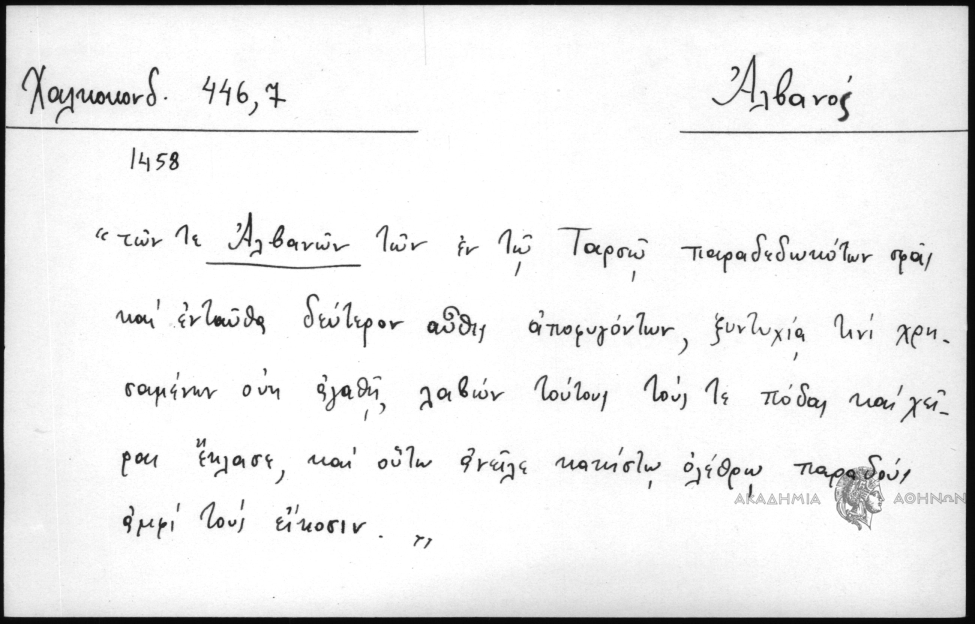 Χαλκοκονδ. 446,7
Ἀλβανός
1458
“των τε Ἀλβανῶν τῶν ἐν τῷ Ταρσῷ παραδεδωκότων σφᾶς
καὶ ἐνταῦθα δεύτερον αὖθις ἀποφυγόντων, ξυντυχίᾳ τινί χρη-
σαμένων οὐκ ἀγαθῇ, λαβών τούτους τούς τε πόδας καί χεῖ-
ρας ἔκλασε, καί οὕτω ἀνεῖλε κακίστῳ ὀλέθρῳ παραδούς
ἀμφί τούς εἴκοσιν. ”
ΑΚΑΔΗΜΙΑ ΑΘΗΝΩΝ